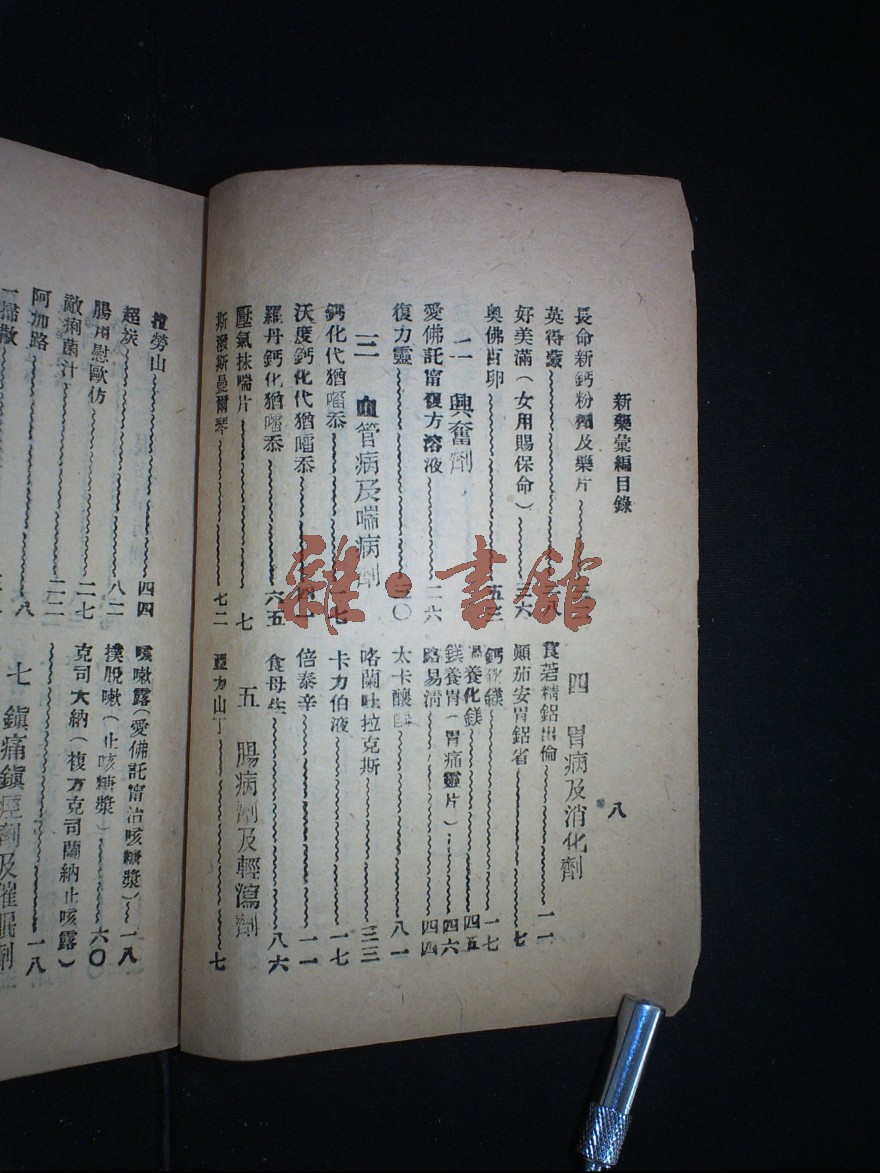 新藥彙編目錄
八
長命新鈣粉劑及藥片
英得蒙
好美滿(女用賜保命) 三六
奧佛肯卵 五三
二 興奮劑
愛佛託甯複方溶液 二六
復力靈 三〇
三 血管病及喘病劑
鈣化代猶嚙忝 一七
沃度鈣化代猶嚙忝
羅丹鈣化猶嚙忝 六五
壓氣抹喘片 七
斯潑斯曼爾琴 七二
四 胃病及消化劑
食若精鋁出倫 一一
顛茄安胃鋁省 七
鈣鎂 一七
養化鎂 四五
鎂養胃(胃痛靈片) 四六
路易清 四四
太卡釀 八一
咯蘭吐拉克斯 三三
卡力伯液 一七
倍泰辛 一一
食母生 八六
五 腸病劑及輕瀉劑
亞力山丁 七
勞山 四四
超炭 八二
腸用慰歐仿 二七
敵痢菌汁 二二
阿加路 八
一掃散
咳嗽露(愛佛託甯治咳糖漿) 一八
撲脫嗽(止咳糖漿) 六〇
克司大納(複方克司蘭納止咳露)
一八
七 鎮痛鎮痙劑及催眠劑
雜·書館